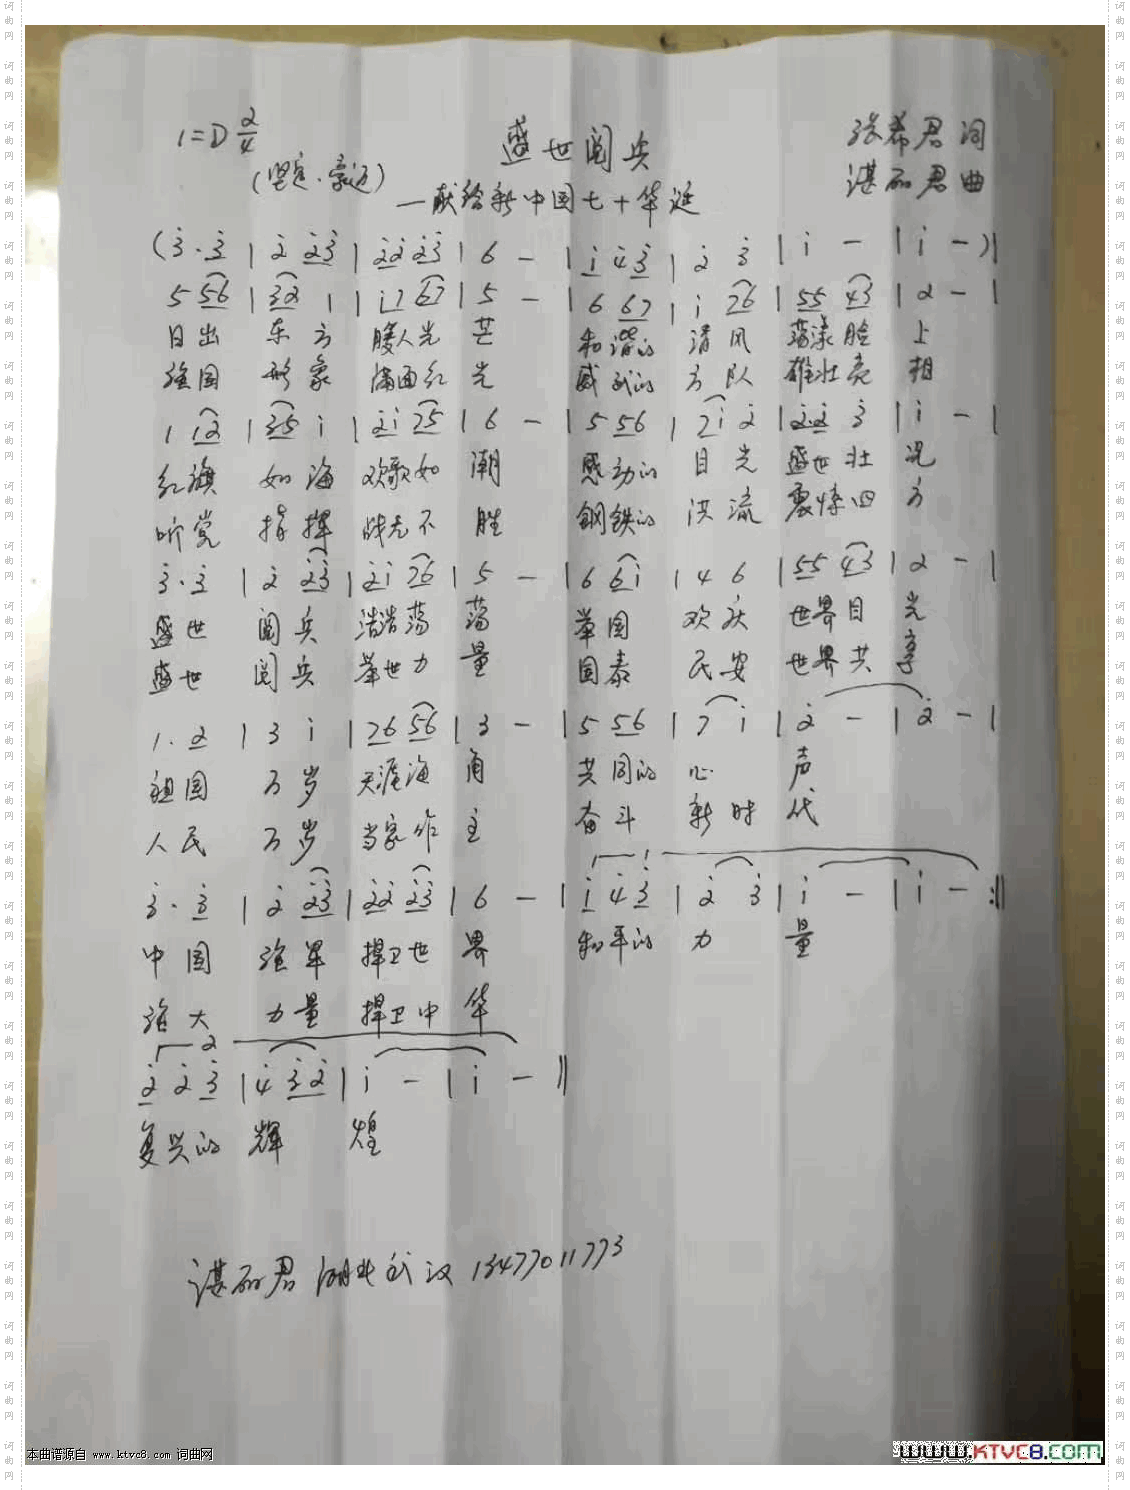 1=D 2/4
盛世阅兵
张希君词
(坚定、豪迈)
谌丽君曲
—献给新中国七十华诞
(3·3|2 23|22 23|6 -|1 4 3|2 3|1 -|1 -)|
5 56|32 1|17 67|5 -|6 67|1 76|55 43|2 -|
日出 东方 腰人光 芒 和谐的 清风 荡漾脸 上
强国 形象 满面红 光 威武的 方队 雄壮亮 相
1 12|35 1|21 25|6 -|5 56|71 2|22 3|1 -|
红旗 如海 欢歌如 潮 感动的 目光 盛世壮 况
听党 指挥 战无不 胜 钢铁的 洪流 震悚四 方
3·3|2 23|21 26|5 -|6 61|4 6|55 43|2 -|
盛世 阅兵 浩浩荡 荡 举国 欢庆 世界目 光
盛世 阅兵 举世力 量 国泰 民安 世界共 享
1·2|3 1|26 56|3 -|5 56|7 1|2 -|2 -|
祖国 万岁 天涯海 角 共同的 心 声
人民 万岁 当家作 主 奋斗 新时 代
3·3|2 23|22 23|6 -|1 4 3|2 3|1 -|1 -:||
中国 强军 捍卫世 界 和平的 力 量
强大 力量 捍卫中 华
2
2 2 3|4 32|1 -|1 -||
复兴的 辉 煌
谌丽君 湖北武汉 13477011773
本曲谱源自 www.ktvc8.com 词曲网
www.KTVC8.com